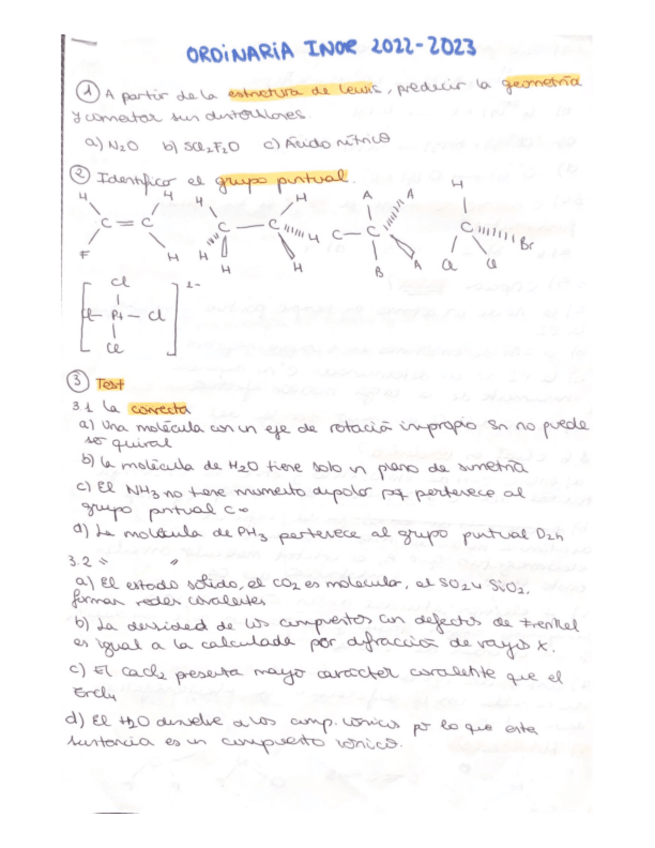 ORDINARIA INOR 2022-2023
① A partir de la estructura de Lewis, predecir la geometría
y comentar sus distorsiones.
a) N₂O b) SCl₂F₂O c) Ácido nítrico
② Identificar el grupo puntual.
H H H H A A H
C = C C — C H C — C C Br
F H H H H B A Cl Cl
[ Cl ] 2-
Cl – Pt – Cl
Cl
③ Test
3.1 La correcta
a) Una molécula con un eje de rotación impropio Sn no puede
ser quiral
b) La molécula de H₂O tiene solo un plano de simetría
c) El NH₃ no tiene momento dipolar pq pertenece al
grupo puntual C∞
d) La molécula de PH₃ pertenece al grupo puntual D2h
3.2 " "
a) El estado sólido, el CO₂ es molecular, el SO₂ y SiO₂,
forman redes covalentes
b) La densidad de los compuestos con defectos de Frenkel
es igual a la calculada por difracción de rayos X.
c) El CaCl₂ presenta mayor carácter covalente que el
d) El H₂O disuelve a los comp. iónicos por lo que esta
sustancia es un compuesto iónico.